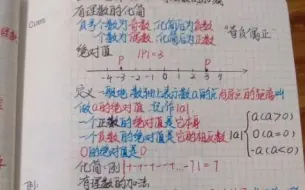 有理数的化简
负号个数为奇数 化简后为负数
一个数为偶数 化简后为正数 "奇负偶正"
绝对值 |P|=3
P P
-4 -3 -2 -1 0 1 2 3 4
定义 一般地,数轴上表示数a的点与原点的距离叫
做a的绝对值,记作|a|
一个正数的绝对值是它本身
一个负数的绝对值是它的相反数
0的绝对值是0
|a| { a(a>0)
0(a=0)
-a(a<0)
化简:
有理数的加法